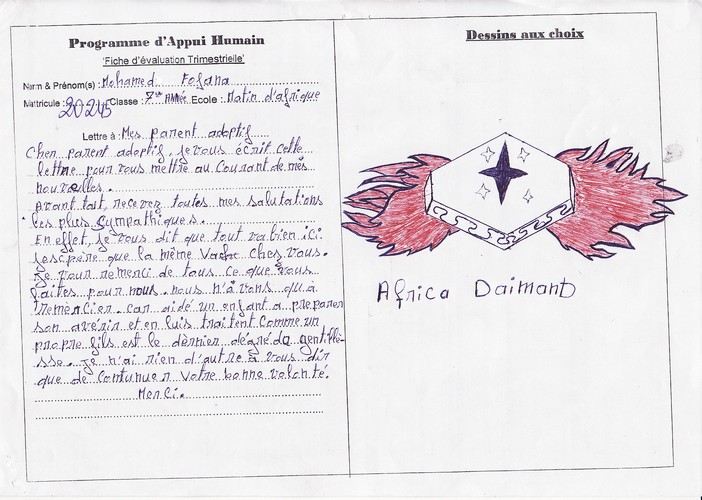 Programme d'Appui Humain
'Fiche d'évaluation Trimestrielle'
Nom & Prénom(s) : Mohamed Fofana
Matricule : 20245 Classe : 7ème Année Ecole : Matin d'afrique
Lettre à : Mes parent adoptif
Cher parent adoptif, je vous écrit cette
lettre pour vous mettre au Courant de mes
nouvelles.
Avant tout, recevez toutes mes salutations
les plus sympathiques.
En effet, je vous dit que tout va bien ici
j'espère que la même Va chez vous.
Je vour remerci de tous ce que vous
faites pour nous. nous n'avons qu'à
remercier. Car aidé un enfant a preparer
son avénir et en luis traitent Comme un
propre fils est le dèrnier dégré de gentille-
sse. je n'ai rien d'autre à vous dir
que de Contunuer Votre bonne volonté.
Merci.
Dessins aux choix
Africa Daimand